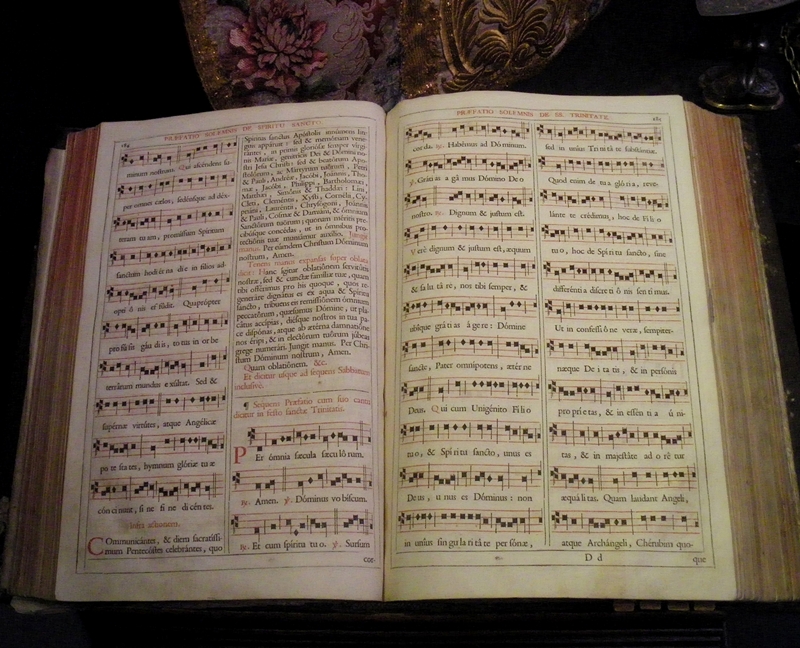 184
PRÆFATIO SOLEMNIS DE SPIRITU SANCTO.
minum nostrum. Qui ascéndens su-
per omnes cælos, sedénsque ad déx-
teram tuam, promíssum Spíritum
sanctum hodiérna die in fílios ad-
optiónis effúdit. Quaprópter
profúsis gáudiis, totus in orbe
terrárum mundus exúltat. Sed &
supérnæ virtútes, atque Angélicæ
potestátes, hymnum glóriæ tuæ
cóncinunt, sine fine dicéntes.
Infra actionem.
Communicántes, & diem sacratíssi-
mum Pentecóstes celebrántes, quo
Spíritus sanctus Apóstolis
apparuit: sed & memóriam vene-
rántes, in primis gloriósæ semper vírgi-
nis Maríæ, genitrícis Dei & Dómini no-
stri Jesu Christi: sed & beatórum Apo-
stolórum, ac Mártyrum tuórum, Petri
& Pauli, Andréæ, Jacóbi, Joánnis, Tho-
mæ, Jacóbi, Philíppi, Bartholomæi,
Matthæi, Simónis & Thaddæi: Lini,
Cleti, Cleméntis, Xysti, Cornélii, Cy-
priáni, Lauréntii, Chrysógoni, Joánnis
& Pauli, Cosmæ & Damiáni, & ómnium
Sanctórum tuórum; quorum méritis pre-
cibúsque concédas, ut in ómnibus pro-
tectiónis tuæ muniámur auxílio. Jungit
manus. Per eúmdem Christum Dóminum
nostrum, Amen.
Tenens manus expansas super oblata
dicit: Hanc ígitur oblatiónem servitútis
nostræ, sed & cunctæ famíliæ tuæ, quam
tibi offérimus pro his quoque, quos re-
generáre dignátus es ex aqua & Spíritu
sancto, tríbuens eis remissiónem ómnium
peccatórum, quæsumus Dómine, ut pla-
cátus accípias, diésque nostros in tua pa-
ce dispónas, atque ab ætérna damnatióne
nos éripi, & in electórum tuórum júbeas
grege numerári. Jungit manus. Per Chri-
stum Dóminum nostrum, Amen.
Quam oblatiónem. &c.
Et dicitur usque ad sequens Sabbatum
inclusivè.
¶ Sequens Præfatio cum suo cantu
dicitur in festo sanctæ Trinitatis.
Per ómnia sæcula sæculórum.
℟. Amen. ℣. Dóminus vobíscum.
℟. Et cum spíritu tuo. ℣. Sursum
cor-
PRÆFATIO SOLEMNIS DE SS. TRINITATE.
185
corda. ℟. Habémus ad Dóminum.
℣. Grátias agámus Dómino Deo
nostro. ℟. Dignum & justum est.
Verè dignum & justum est, æquum
& salutáre, nos tibi semper, &
ubíque grátias ágere: Dómine
sancte, Pater omnípotens, ætérne
Deus, Qui cum Unigénito Fílio
tuo, & Spíritu sancto, unus es
Deus, unus es Dóminus: non
in uníus singularitáte persónæ,
sed in uníus Trinitáte substántiæ.
Quod enim de tua glória, reve-
lánte te crédimus, hoc de Fílio
tuo, hoc de Spíritu sancto, sine
differéntia discretiónis sentímus.
Ut in confessióne veræ, sempiter-
næque Deitátis, & in persónis
propríetas, & in esséntia úni-
tas, & in majestáte adorétur
æquálitas. Quam laudant Angeli,
atque Archángeli, Chérubim quo-
D d
que